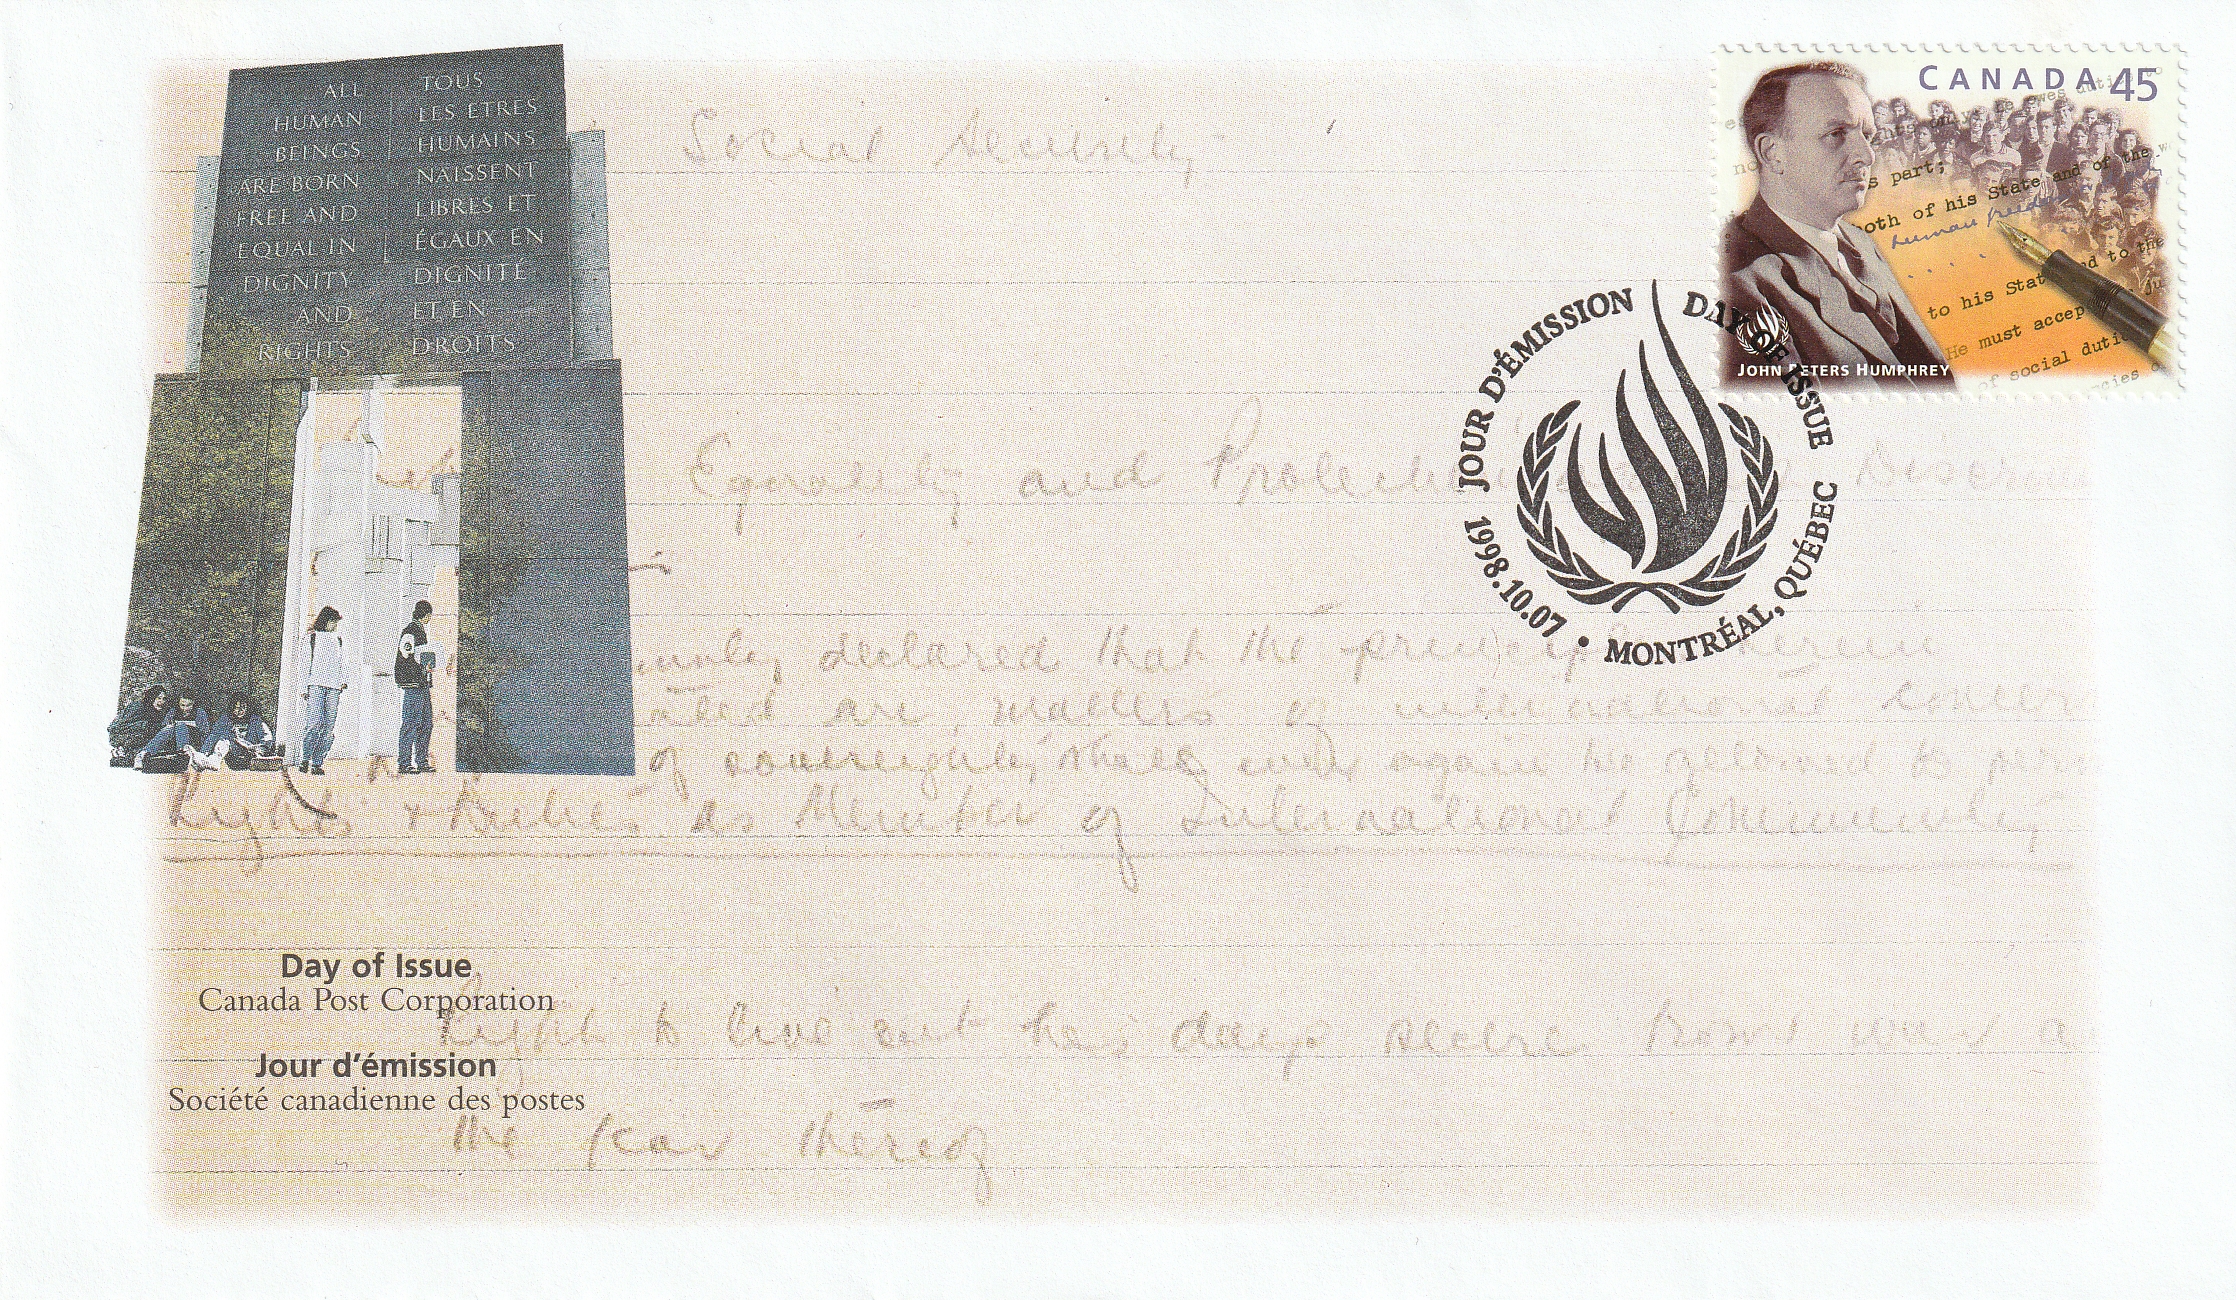 ALL
HUMAN
BEINGS
ARE BORN
FREE AND
EQUAL IN
DIGNITY
AND
RIGHTS
TOUS
LES ETRES
HUMAINS
NAISSENT
LIBRES ET
ÉGAUX EN
DIGNITÉ
ET EN
DROITS
CANADA 45
s part;
both of his State and of the
human freedom
to his State and to the
He must accept
of social duti
JOHN PETERS HUMPHREY
JOUR D'ÉMISSION DAY OF ISSUE
1998.10.07 • MONTRÉAL, QUÉBEC
Social Security
Equality and Protection Discrim
declared that the principles herein
are matters of international concern
of sovereignty shall ever again be allowed to
Rights & Duties as Member of International Community
Day of Issue
Canada Post Corporation
Right to live out his days secure from war a
Jour d'émission
Société canadienne des postes
the fear thereof